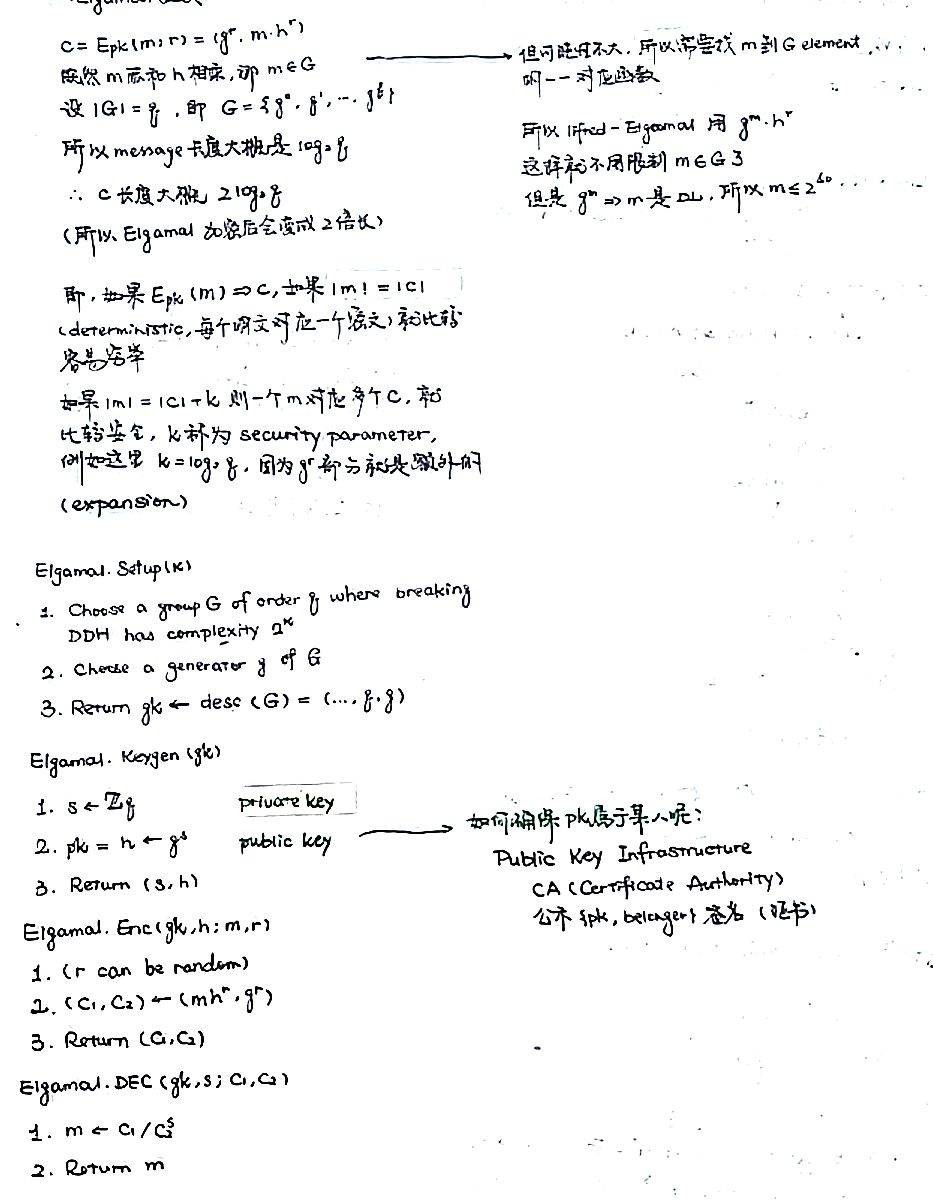 C = Epk(m;r) = (gʳ, m·hʳ)
既然 m 需和 h 相乘, 即 m∈G
设 |G| = q, 即 G = {g⁰, g¹, ... }
所以 message 长度大概是 log₂q
∴ C 长度大概 2log₂q
(所以 Elgamal 加密后会变成 2 倍长)
但可能性不大, 所以需要找 m 到 G element
的一一对应函数
所以 lifted-Elgamal 用 gᵐ·hʳ
这样就不用限制 m∈G 了
但是 gᵐ ⇒ m 是 DL, 所以 m ≤
即, 如果 Epk(m) ⇒ C, 如果 |m| = |C|
(deterministic, 每个明文对应一个密文) 就比较
容易穷举
如果 |m| = |C|+k 则一个 m 对应多个 C, 就
比较安全, k 称为 security parameter,
例如这里 k = log₂q, 因为 gʳ 部分就是额外的
(expansion)
Elgamal.Setup(κ)
1. Choose a group G of order q where breaking
DDH has complexity 2^κ
2. Choose a generator g of G
3. Return gk ← desc(G) = (..., q, g)
Elgamal.Keygen(gk)
1. s ← ℤq private key
2. pk = h ← gˢ public key
3. Return (s, h)
如何确保 pk 属于某人呢:
Public Key Infrastructure
CA (Certificate Authority)
公布 {pk, belonger} 签名 (证书)
Elgamal.Enc(gk, h; m, r)
1. (r can be random)
2. (C₁, C₂) ← (mhʳ, gʳ)
3. Return (C₁, C₂)
Elgamal.DEC(gk, s; C₁, C₂)
1. m ← C₁/C₂ˢ
2. Return m